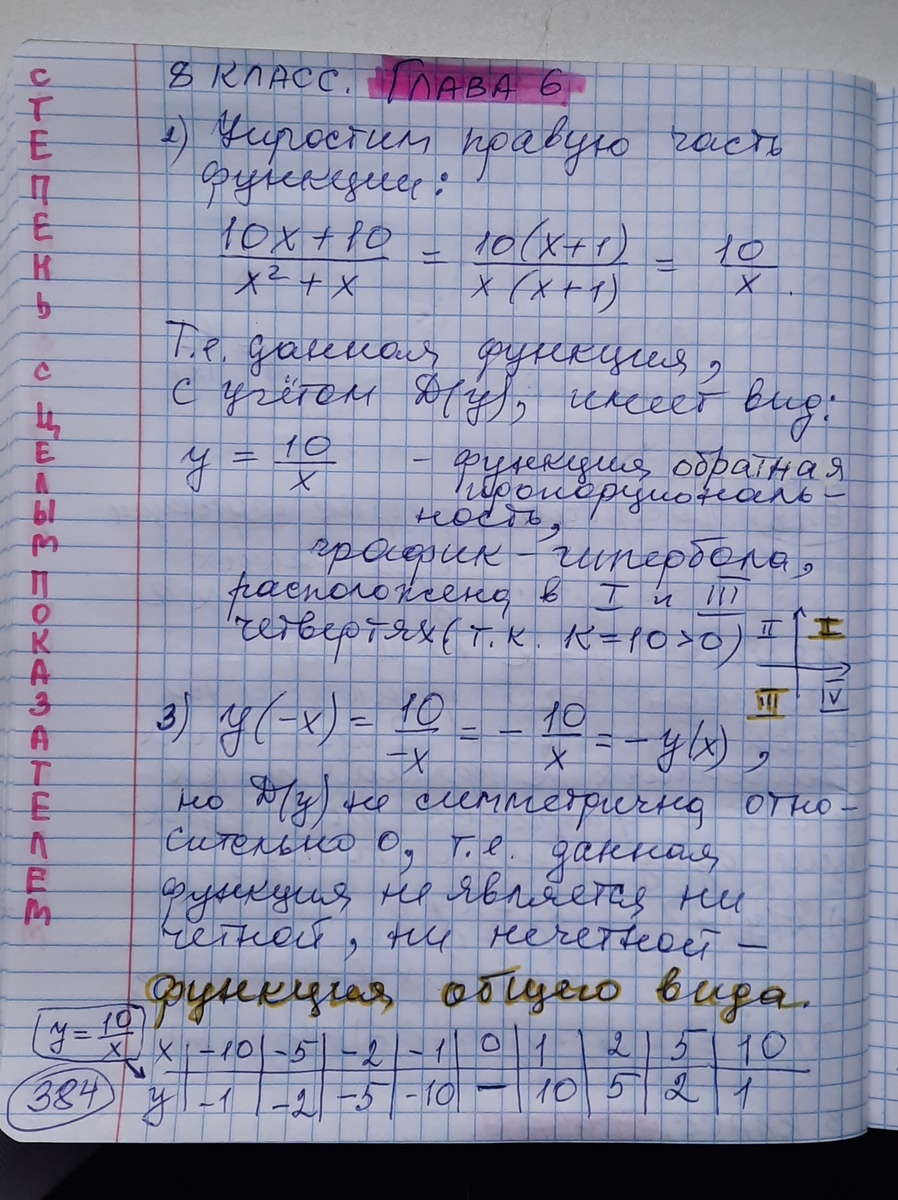 СТЕПЕНЬ С ЦЕЛЫМ ПОКАЗАТЕЛЕМ
8 КЛАСС. ГЛАВА 6
2) Упростим правую часть
функции:
(10x+10)/(x²+x) = 10(x+1)/(x(x+1)) = 10/x.
Т.е. данная функция,
с учётом D(y), имеет вид:
y = 10/x - функция обратная
пропорциональ-
ность,
график - гипербола,
расположена в I и III
четвертях (т.к. K=10>0)
II I
III IV
3) y(-x) = 10/-x = - 10/x = -y(x),
но D(y) не симметрична отно-
сительно 0, т.е. данная
функция не является ни
четной, ни нечетной -
функция общего вида.
y = 10/x
x | -10 | -5 | -2 | -1 | 0 | 1 | 2 | 5 | 10
y | -1 | -2 | -5 | -10 | - | 10 | 5 | 2 | 1
384